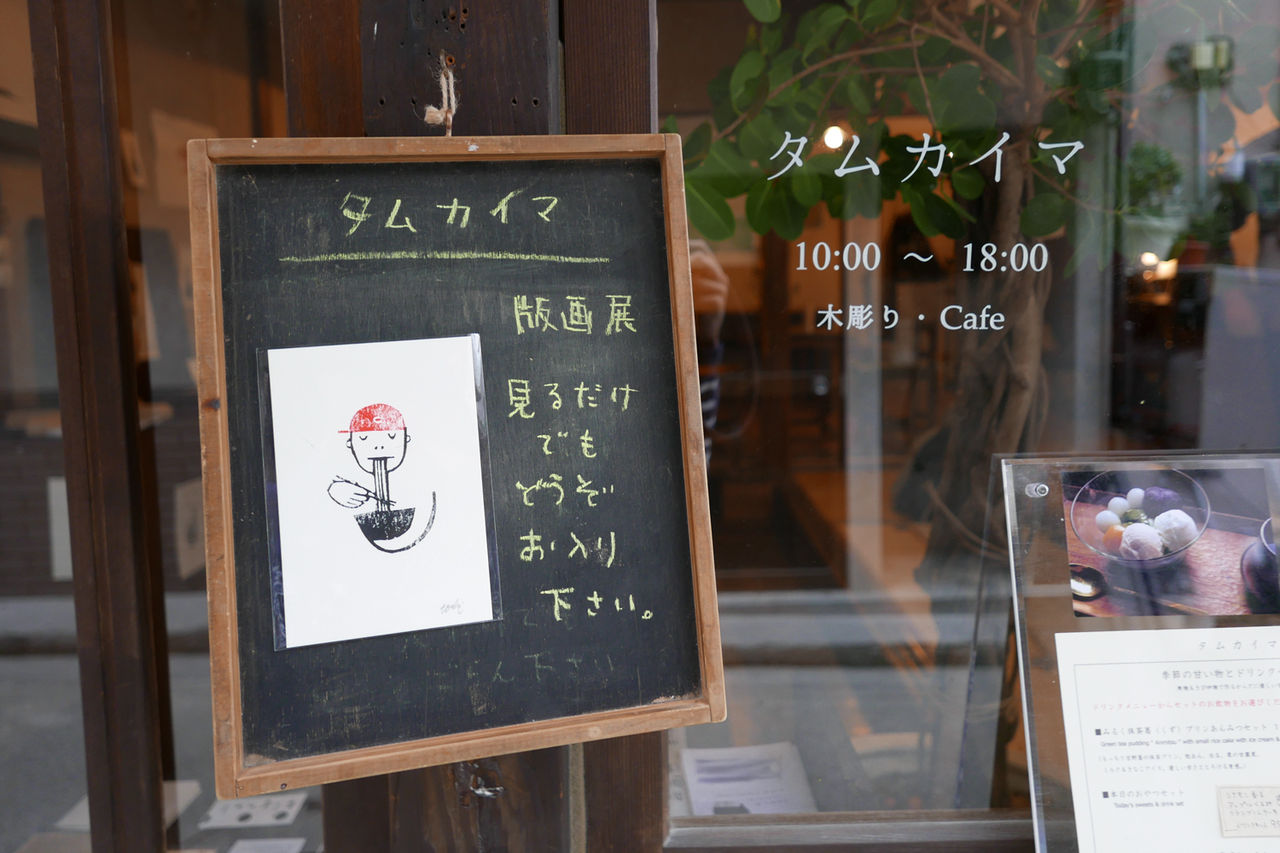 タムカイマ
版画展
見るだけ
でも
どうぞ
お入り
下さい。
タムカイマ
10:00 〜 18:00
木彫り・Cafe
タムカイマ
季節の甘い物とドリンク
ドリンクメニューからセットのお飲物をお選びくだ
■みるく抹茶葛（くず）プリンあんみつセット
Green tea pudding " Anmitsu" with small rice cake with ice cream &
■本日のおやつセット
Today's sweets & drink set